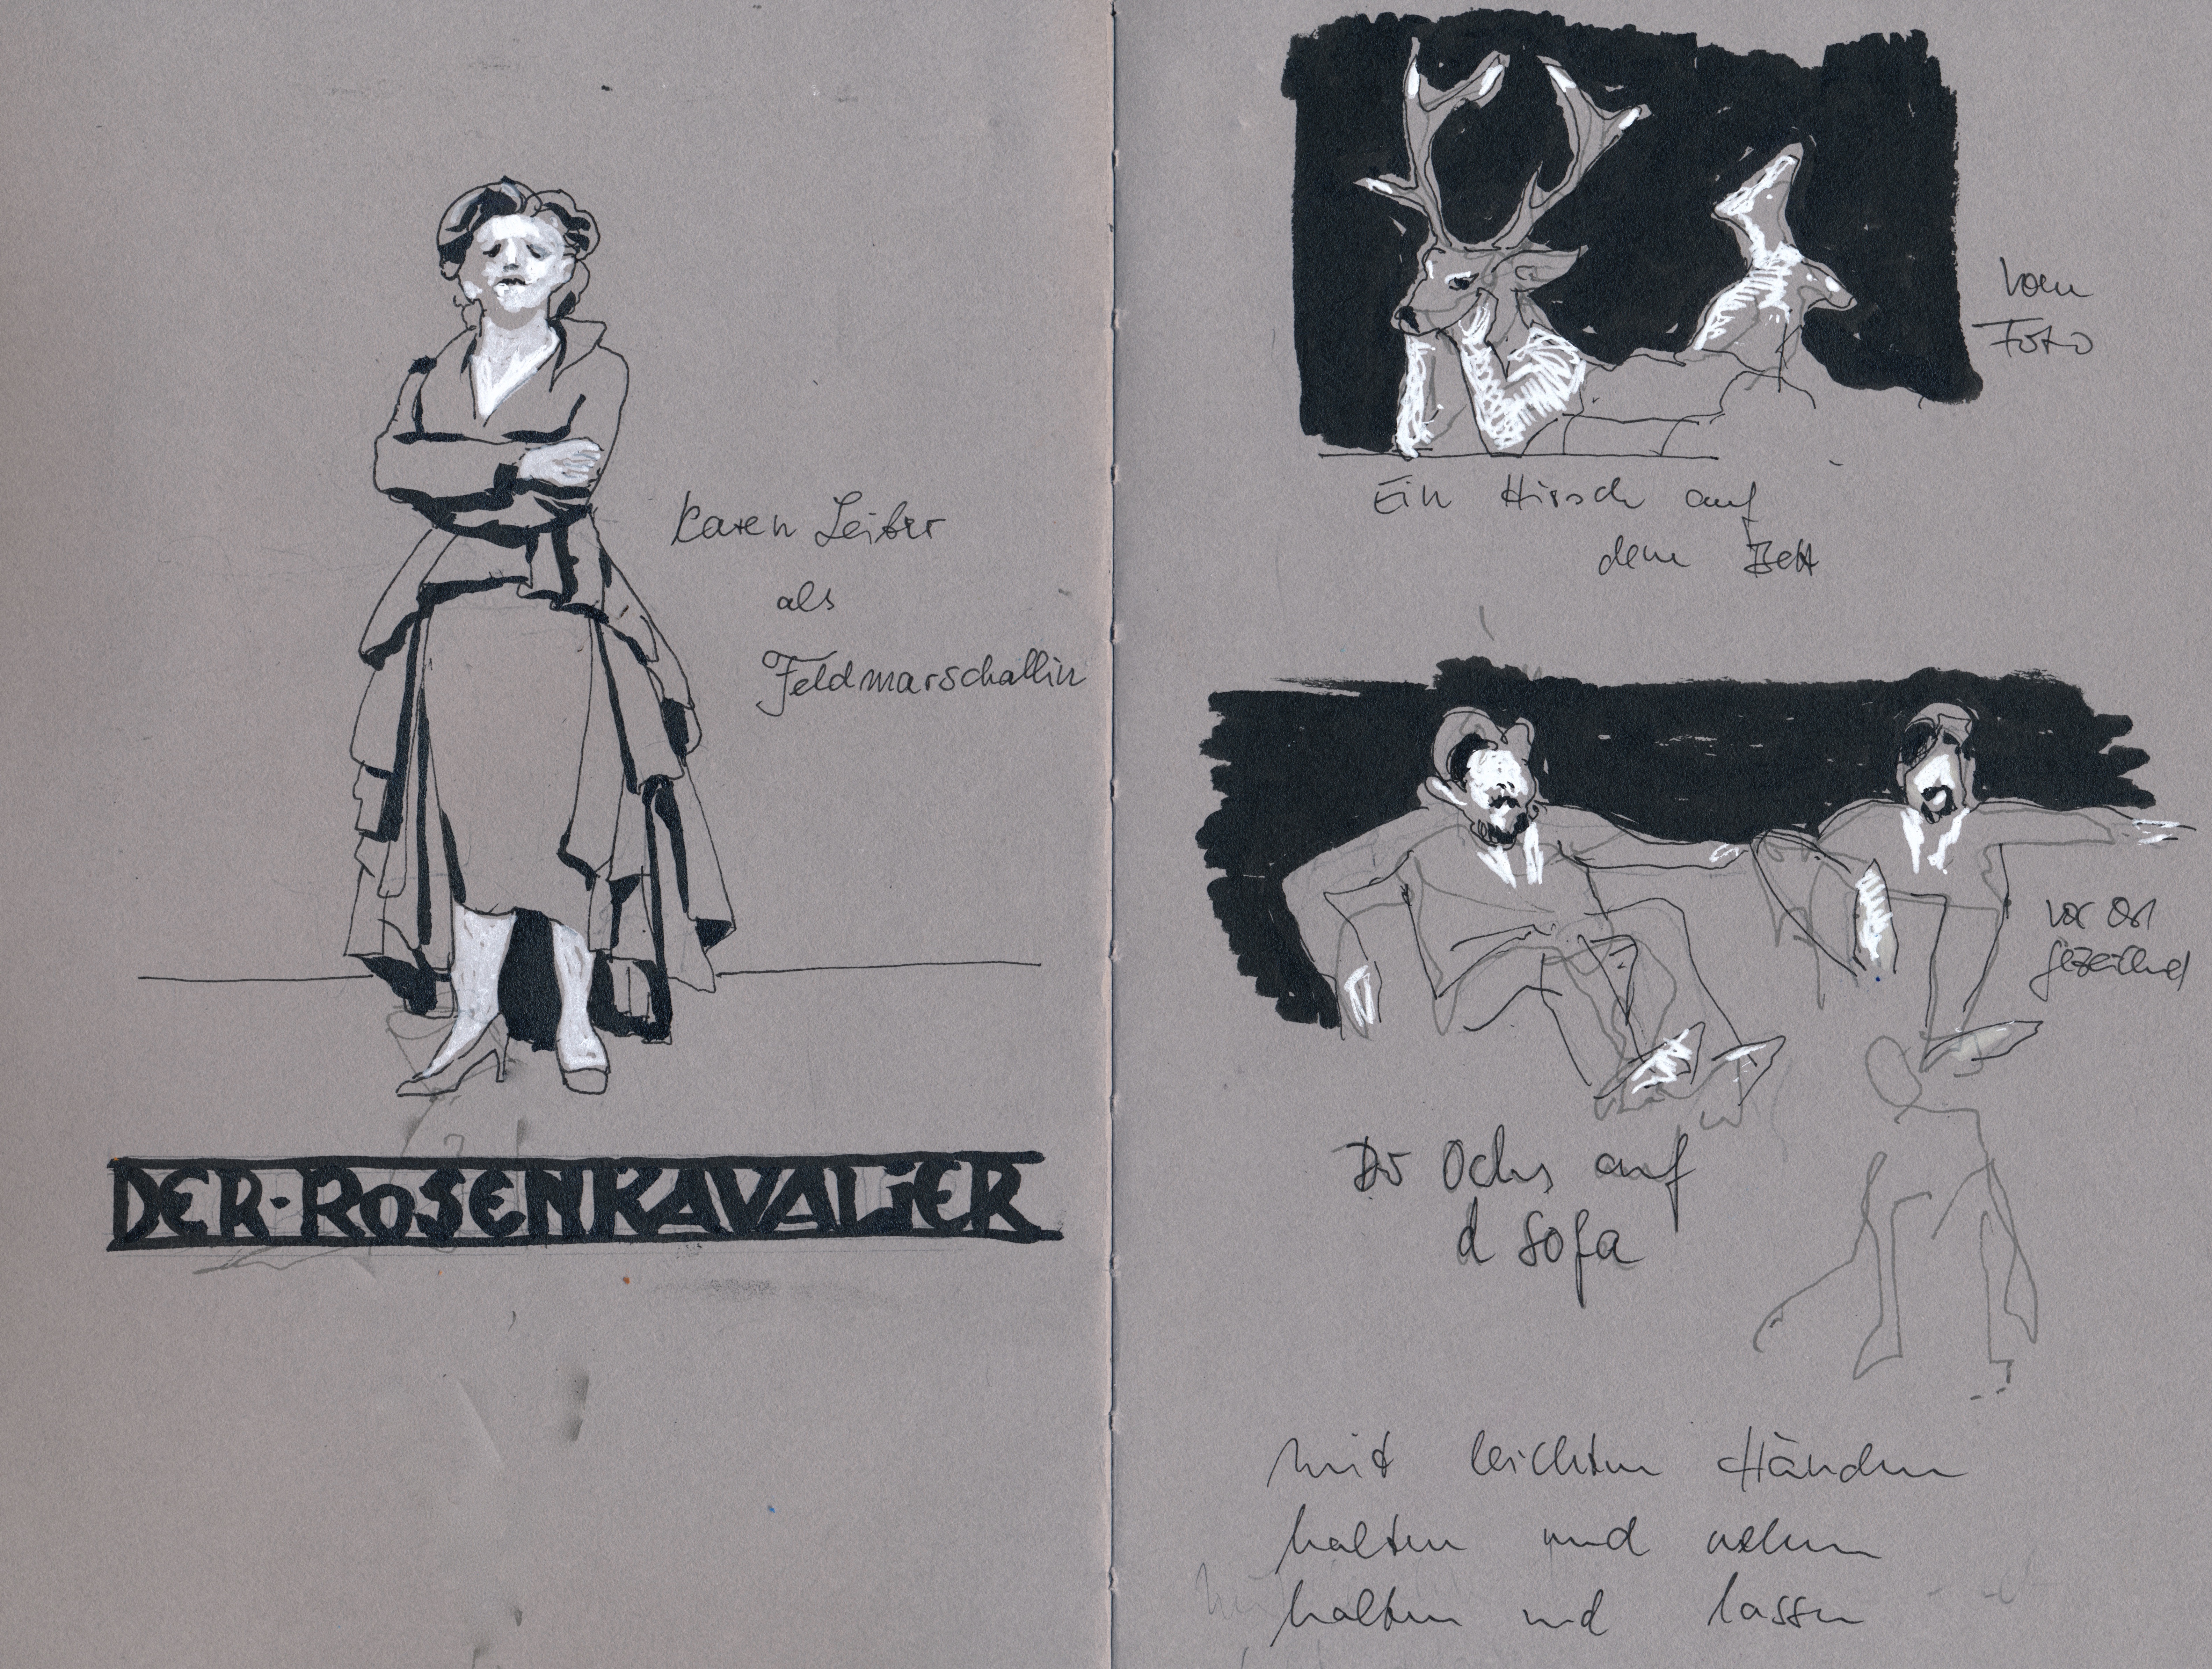 Karen Leiber
als
Feldmarschallin
DER·ROSENKAVALiER
vom
Foto
Ein Hirsch auf
dem Bett
vor Ort
gezeichnet
Der Ochs auf
d Sofa
mit leichten Händen
halten und nehmen
halten und lassen